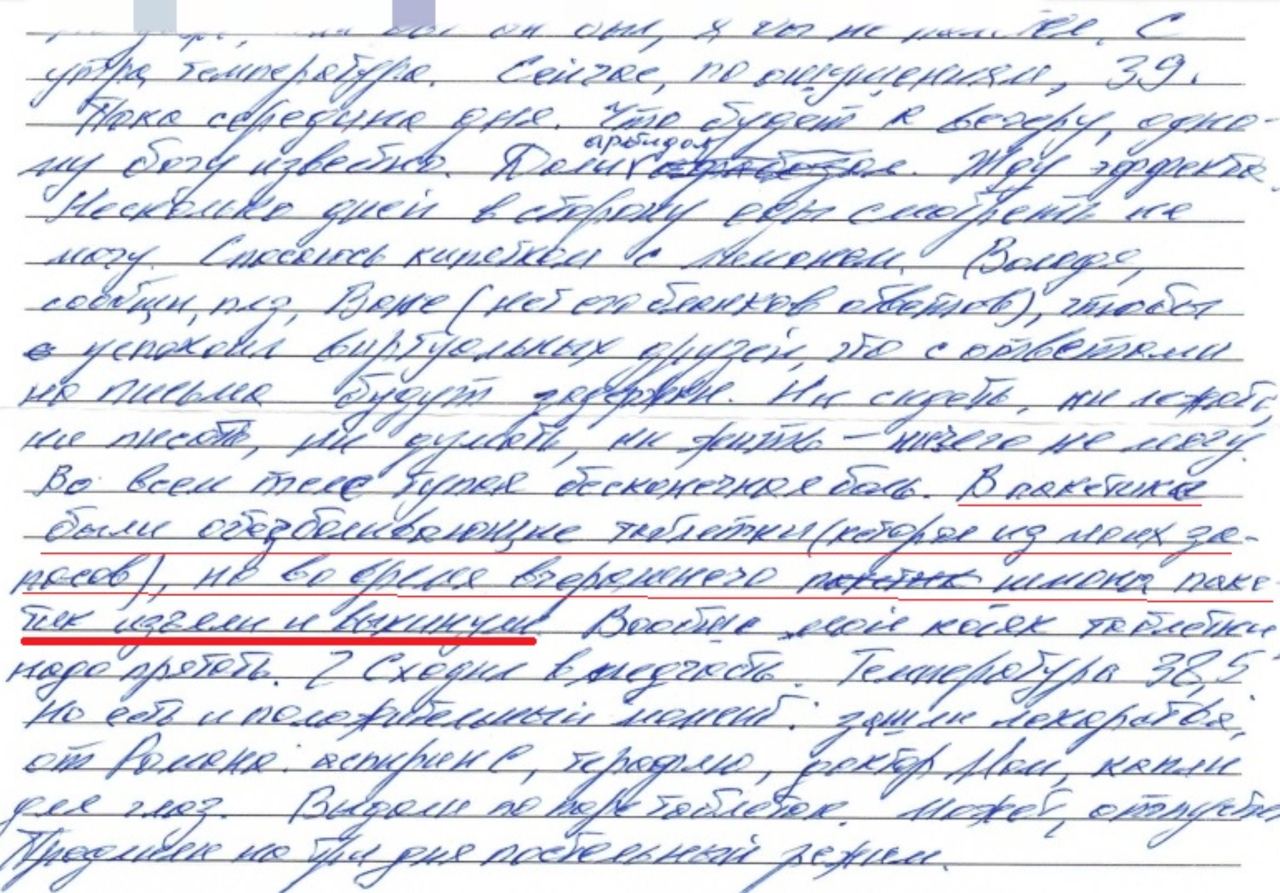 он был, я бы не С
утра температура. Сейчас, по ощущениям, 39.
Пока середина дня. Что будет к вечеру, одно-
арбидол
му богу известно. Пью . Жду эффекта.
Несколько дней в сторону еды смотреть не
могу. Спасаюсь кипятком с лимоном. Володя,
сообщи, плз, Ване (нет его бланков ответов), чтобы
успокоил виртуальных друзей, что с ответами
на письма будут задержки. Ни сидеть, ни лежать,
ни писать, ни думать, ни жить – ничего не могу.
Во всем теле тупая бесконечная боль. В пакетике
были обезболивающие таблетки (которые из моих за-
пасов), но во время вчерашнего пакетик шмона паке-
тик изъяли и выкинули. Вообще, мой косяк таблетки
надо прятать. Сходил в медчасть. Температура 38,5
Но есть и положительный момент: зашли лекарства,
от Романа: аспирин С, терафлю, доктор Мом, капли
для глаз. Выдали по паре таблеток. Может, отпустит
Продлили на три дня постельный режим.